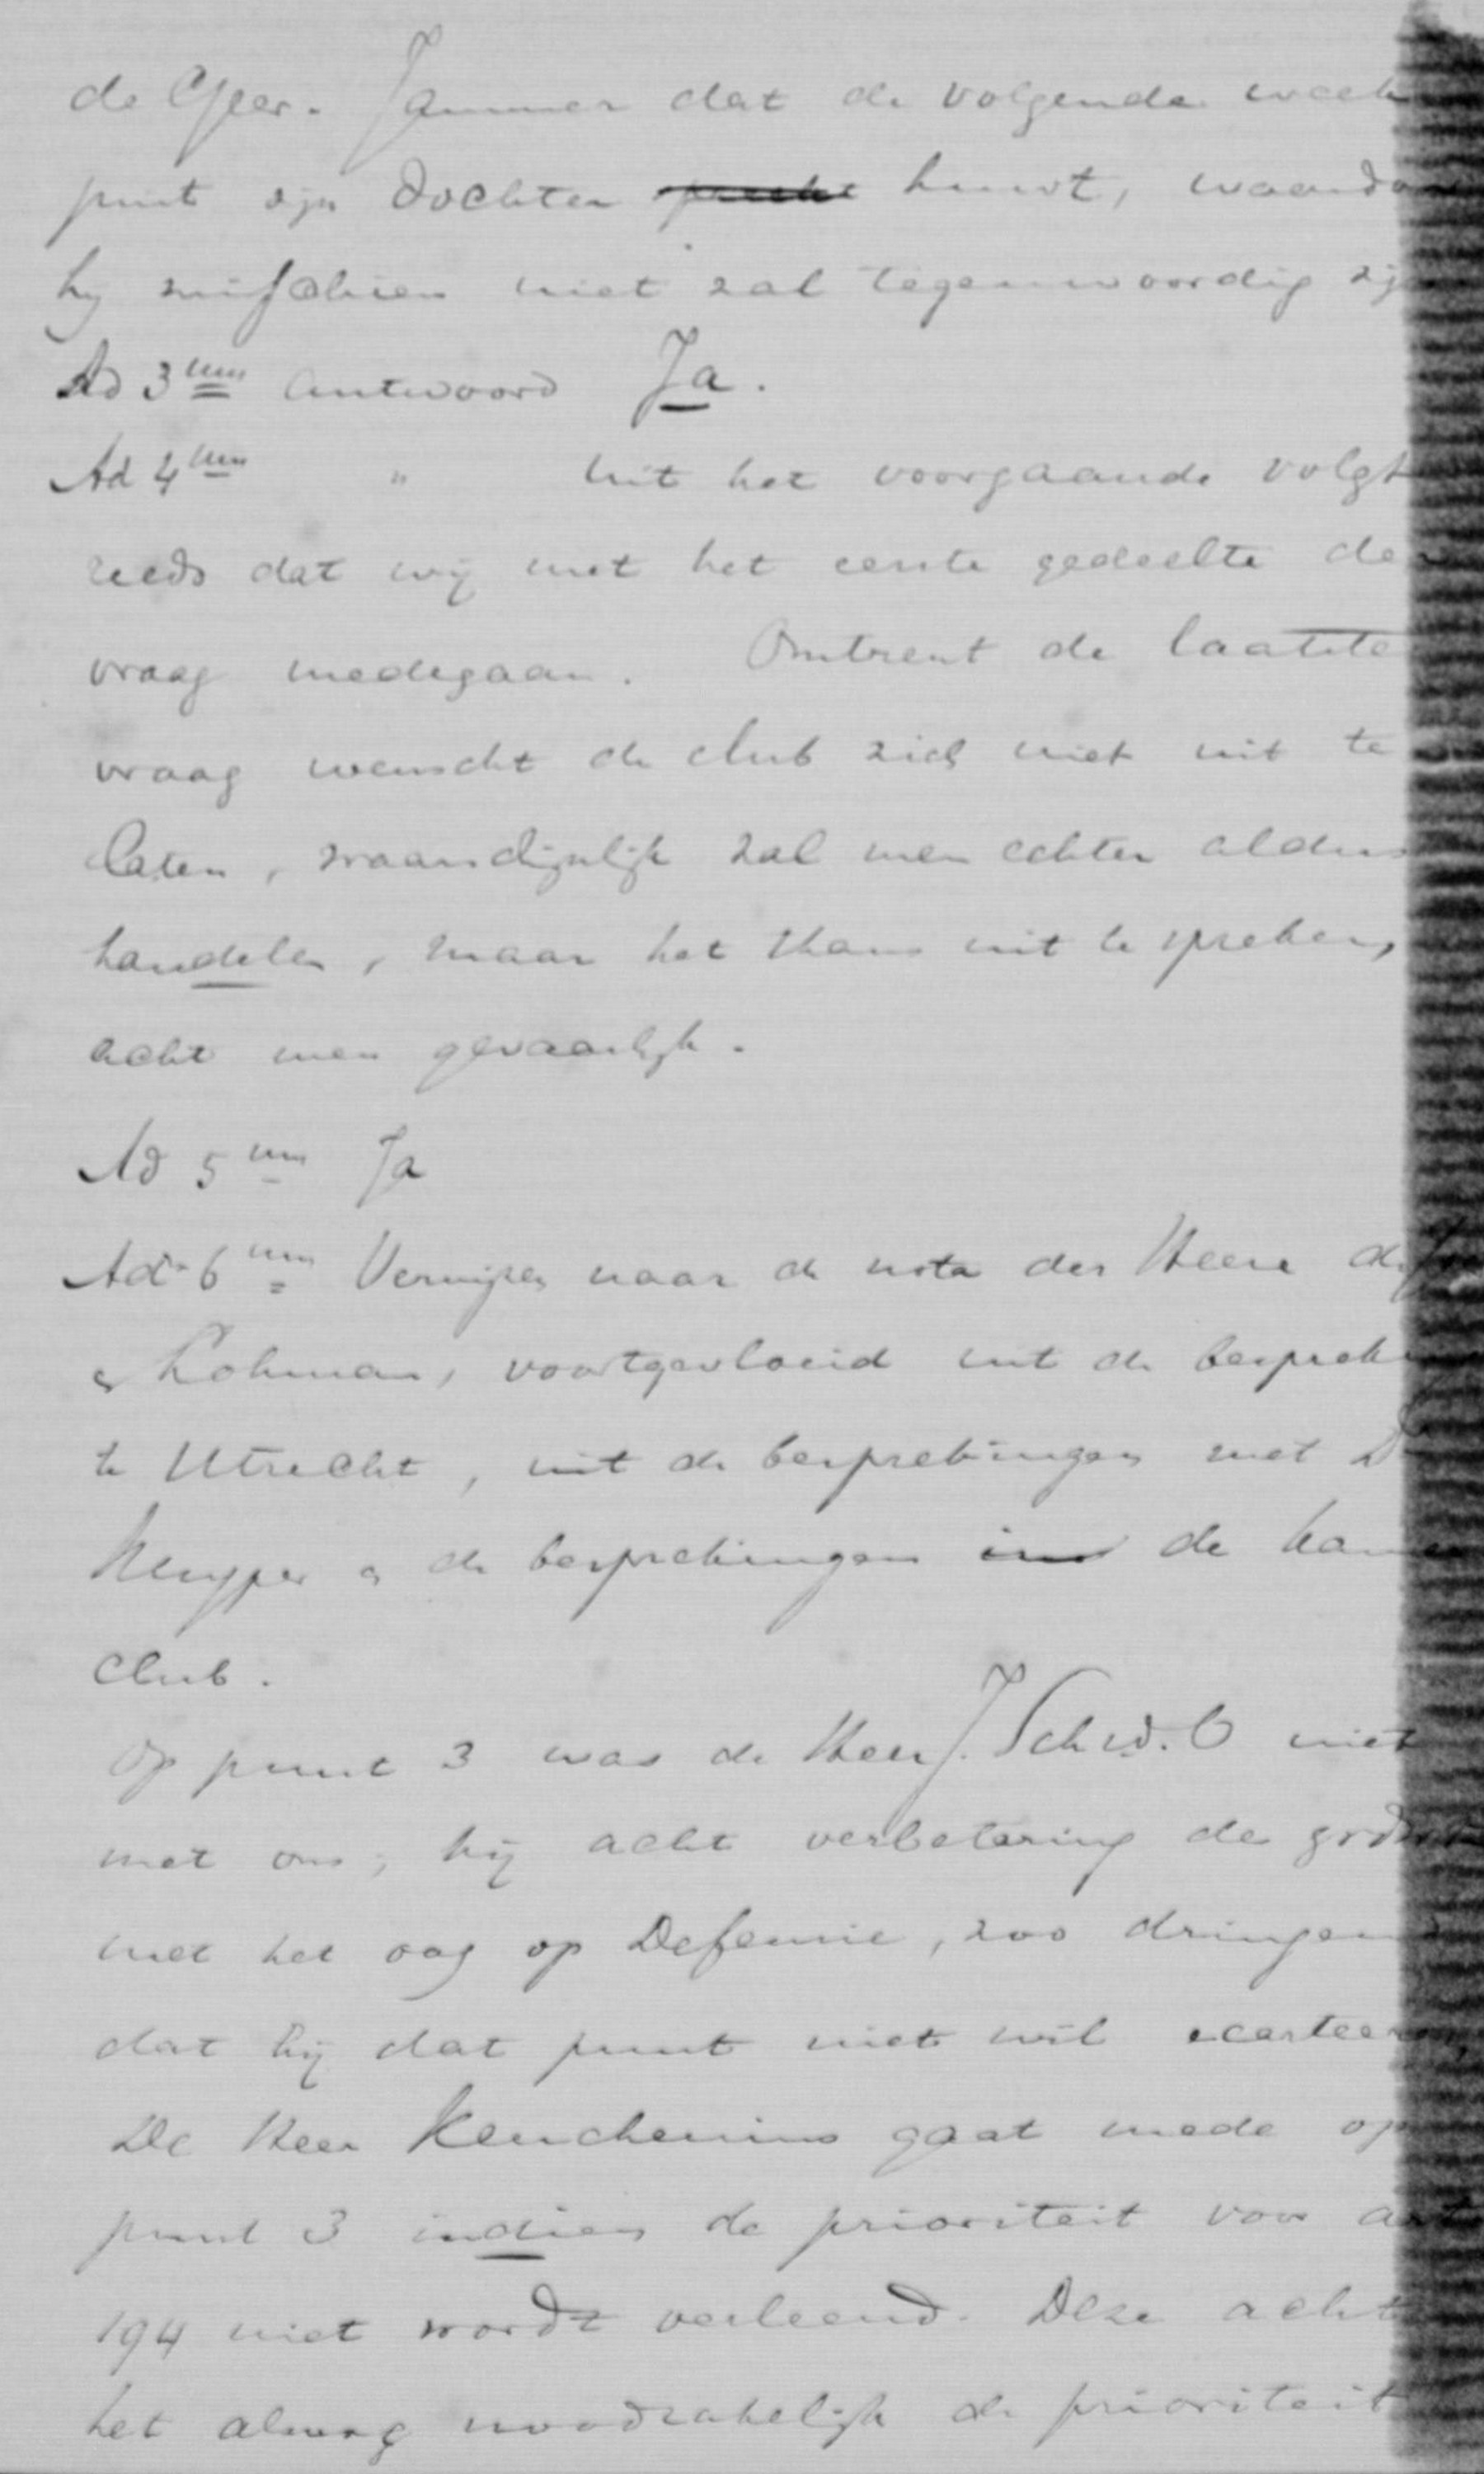 de Geer. Jammer dat de volgende week
juist zijn dochter huwt, waardo
hij misschien niet zal tegenwoordig zij
Ad 3um antwoord Ja.
Ad 4um " Uit het voorgaande volgt
reeds dat wij met het eerste gedeelte de
vraag medegaan. Omtrent de laatste
vraag wenscht de club zich niet uit te
laten, waarschijnlijk zal men echter aldus
handelen, maar het thans uit te spreken,
acht men gevaarlijk.
Ad 5um Ja
Ad 6um Verwijzen naar de nota der Heere de
& Lohman, voortgevloeid uit de besprek
te Utrecht, uit de besprekingen met D
Kuyper & de besprekingen in de kamer
club.
Op punt 3 was de Heer J. Sch. v. O niet
met ons; hij acht verbetering der grdw
met het oog op Defensie, zoo dringend
dat hij dat punt niet wil ecarteeren,
De Heer Keuchenius gaat mede op
punt 3 indien de prioriteit voor art
194 niet wordt verleend. Deze acht
het alweg noodzakelijk de prioriteit